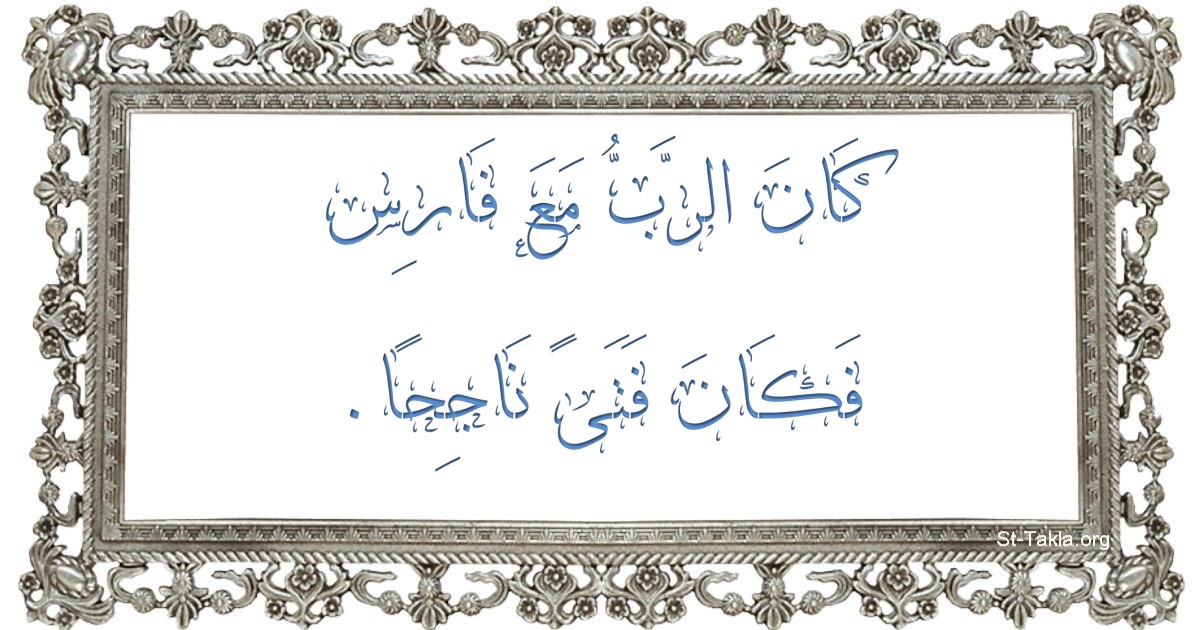 كَانَ الرَّبُّ مَعَ فَارِسِ
فَكَانَ فَتَىً نَاجِحًا .
St-Takla.org